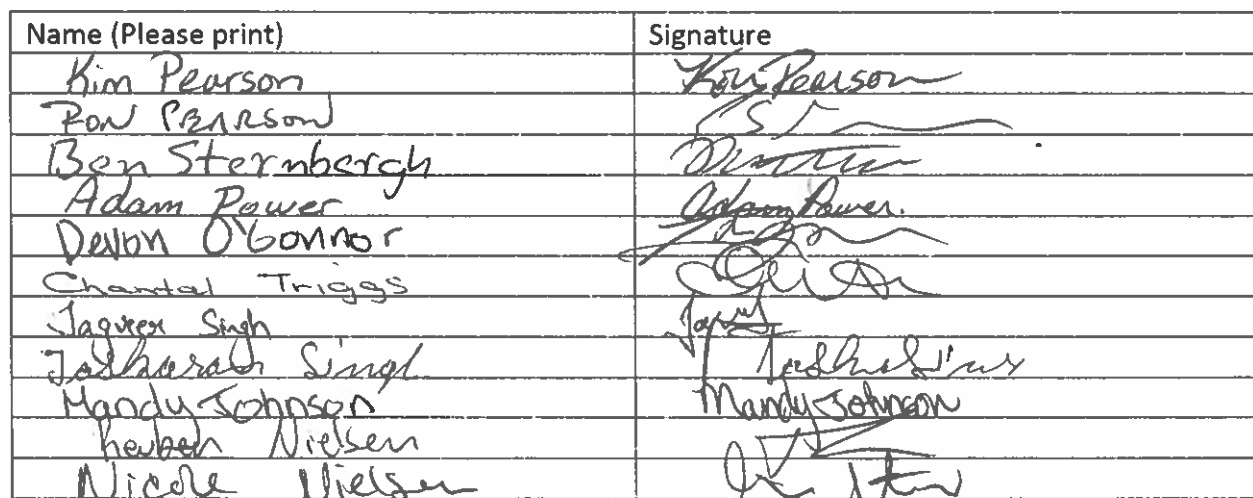 Name (Please print) Signature
Kim Pearson Kim Pearson
RON PEARSON
Ben Sternbergh
Adam Power Adam Power.
Devon O'Connor
Chantal Triggs
Jagveer Singh
Singh
Mandy Johnson Mandy Johnson
Reuben Nielsen
Nicole Nielsen